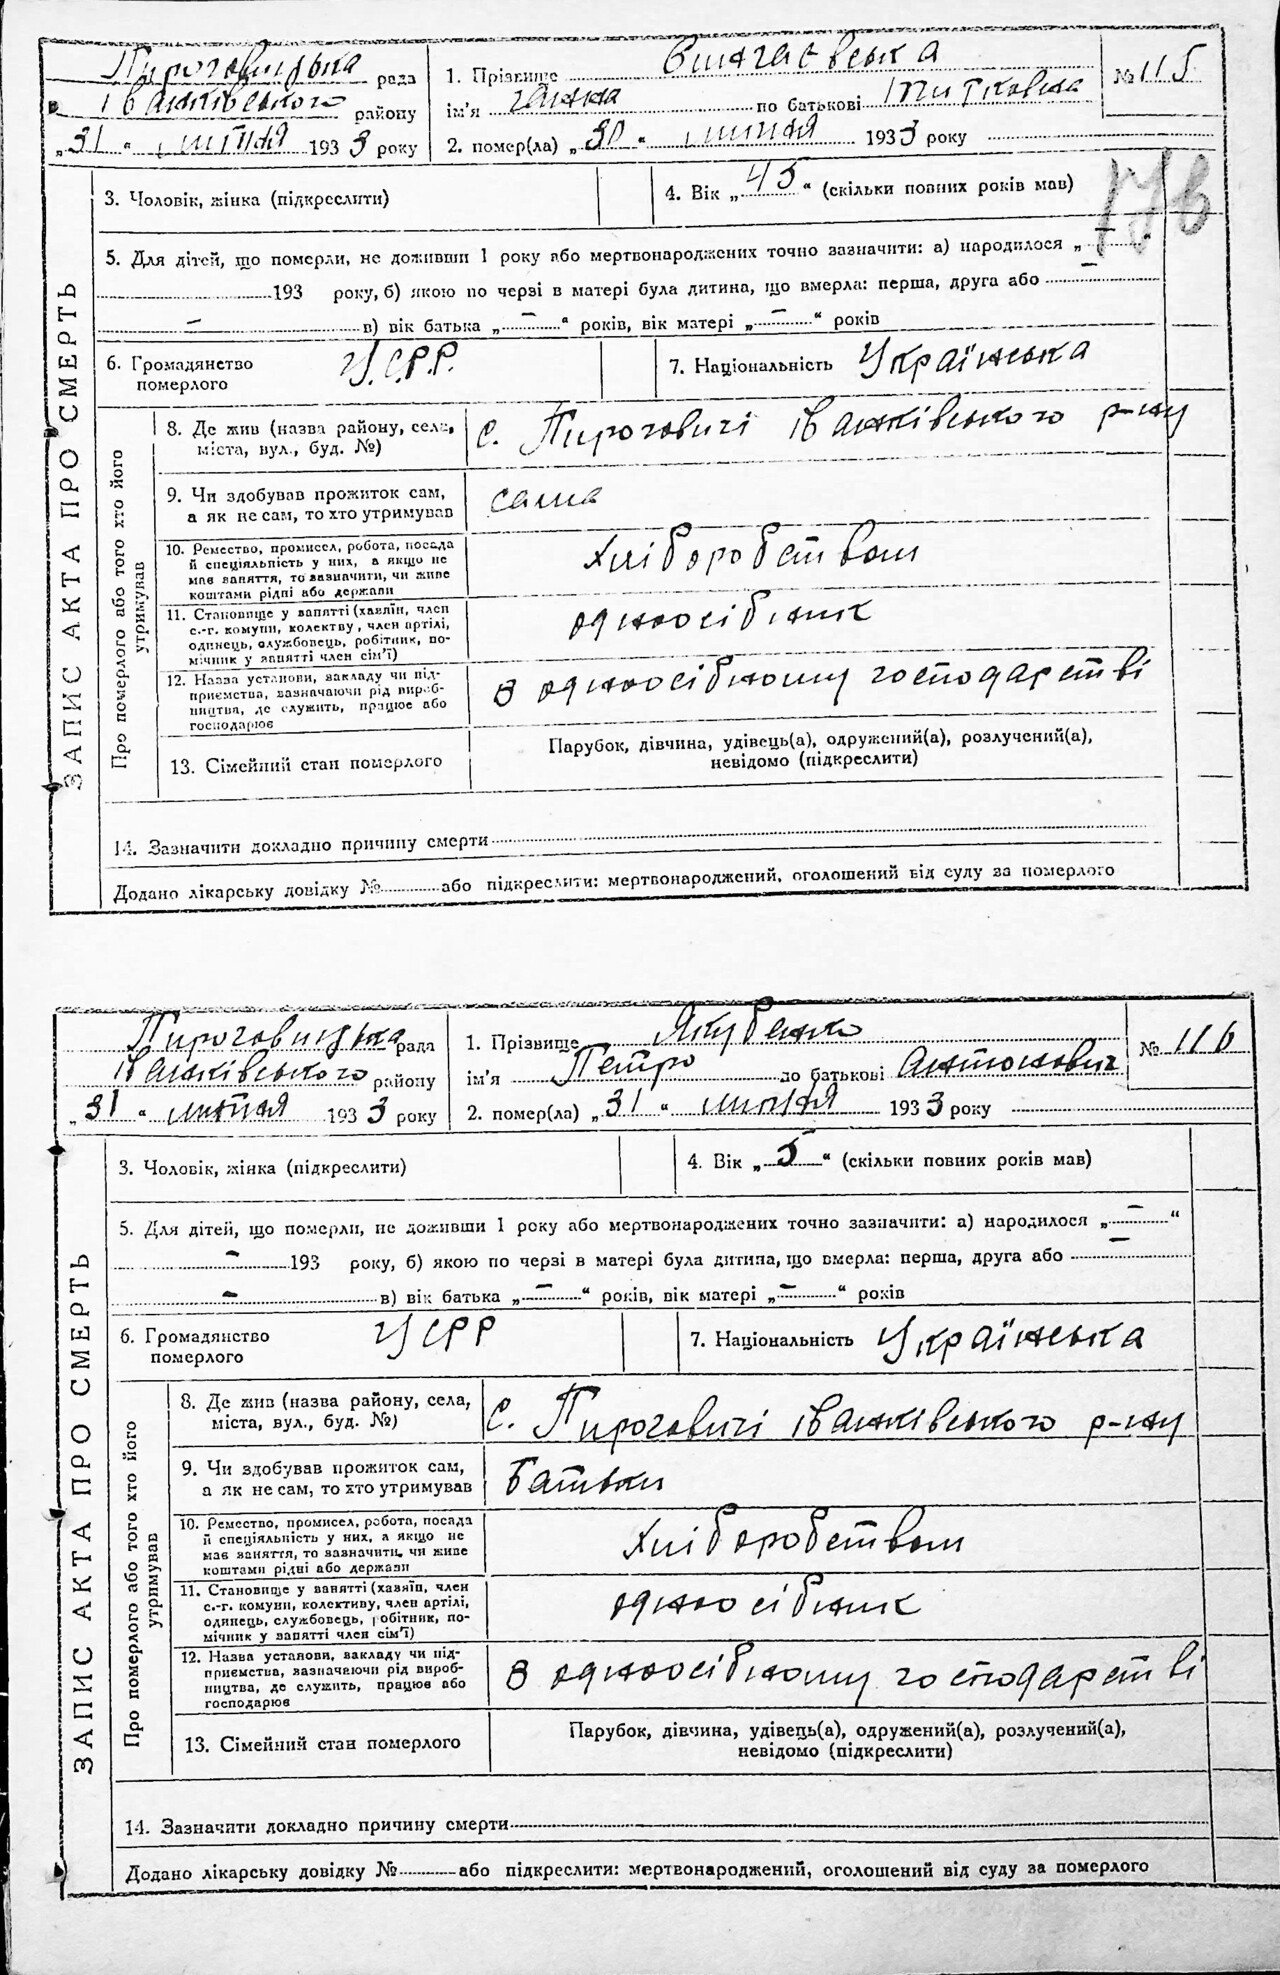 Пироговицька рада
Іванківського району
„31“ липня 1933 року
1. Прізвище
ім'я Ганна по батькові
2. помер(ла) „30“ липня 1933 року
№ 115
176
ЗАПИС АКТА ПРО СМЕРТЬ
3. Чоловік, жінка (підкреслити)
4. Вік „45“ (скільки повних років мав)
5. Для дітей, що померли, не доживши 1 року або мертвонароджених точно зазначити: а) народилося „—“
193 року, б) якою по черзі в матері була дитина, що вмерла: перша, друга або —
— в) вік батька „—“ років, вік матері „—“ років
6. Громадянство
померлого
У.С.Р.Р.
7. Національність Українська
Про померлого або того хто його
утримував
8. Де жив (назва району, села,
міста, вул., буд. №)
с. Пироговичі Іванківського р-ну
9. Чи здобував прожиток сам,
а як не сам, то хто утримував
сама
10. Ремество, промисел, робота, посада
й спеціяльність у них, а якщо не
мав заняття, то зазначити, чи живе
коштами рідні або держави
Хліборобством
11. Становище у занятті (хазяїн, член
с.-г. комуни, колектву, член артілі,
одинець, службовець, робітник, по-
мічник у занятті член сім'ї)
одноосібник
12. Назва установи, закладу чи під-
приємства, зазначаючи рід вироб-
ництва, де служить, працює або
господарює
в одноосібному господарстві
13. Сімейний стан померлого
Парубок, дівчина, удівець(а), одружений(а), розлучений(а),
невідомо (підкреслити)
14. Зазначити докладно причину смерти
Додано лікарську довідку № або підкреслити: мертвонароджений, оголошений від суду за померлого
Пироговицька рада
Іванківського району
„31“ липня 1933 року
1. Прізвище Якубенко
ім'я Петро по батькові Антонович
2. помер(ла) „31“ липня 1933 року
№ 116
ЗАПИС АКТА ПРО СМЕРТЬ
3. Чоловік, жінка (підкреслити)
4. Вік „5“ (скільки повних років мав)
5. Для дітей, що померли, не доживши 1 року або мертвонароджених точно зазначити: а) народилося „—“
— 193 року, б) якою по черзі в матері була дитина, що вмерла: перша, друга або —
— в) вік батька „—“ років, вік матері „—“ років
6. Громадянство
померлого
УСРР
7. Національність Українська
Про померлого або того хто його
утримував
8. Де жив (назва району, села,
міста, вул., буд. №)
с. Пироговичі Іванківського р-ну
9. Чи здобував прожиток сам,
а як не сам, то хто утримував
Батьки
10. Ремество, промисел, робота, посада
й спеціяльність у них, а якщо не
має заняття, то зазначити, чи живе
коштами рідні або держави
Хліборобством
11. Становище у занятті (хазяїн, член
с.-г. комуни, колективу, член артілі,
одинець, службовець, робітник, по-
мічник у занятті член сім'ї)
одноосібник
12. Назва установи, закладу чи під-
приємства, зазначаючи рід вироб-
ництва, де служить, працює або
господарює
в одноосібному господарстві
13. Сімейний стан померлого
Парубок, дівчина, удівець(а), одружений(а), розлучений(а),
невідомо (підкреслити)
14. Зазначити докладно причину смерти
Додано лікарську довідку № або підкреслити: мертвонароджений, оголошений від суду за померлого